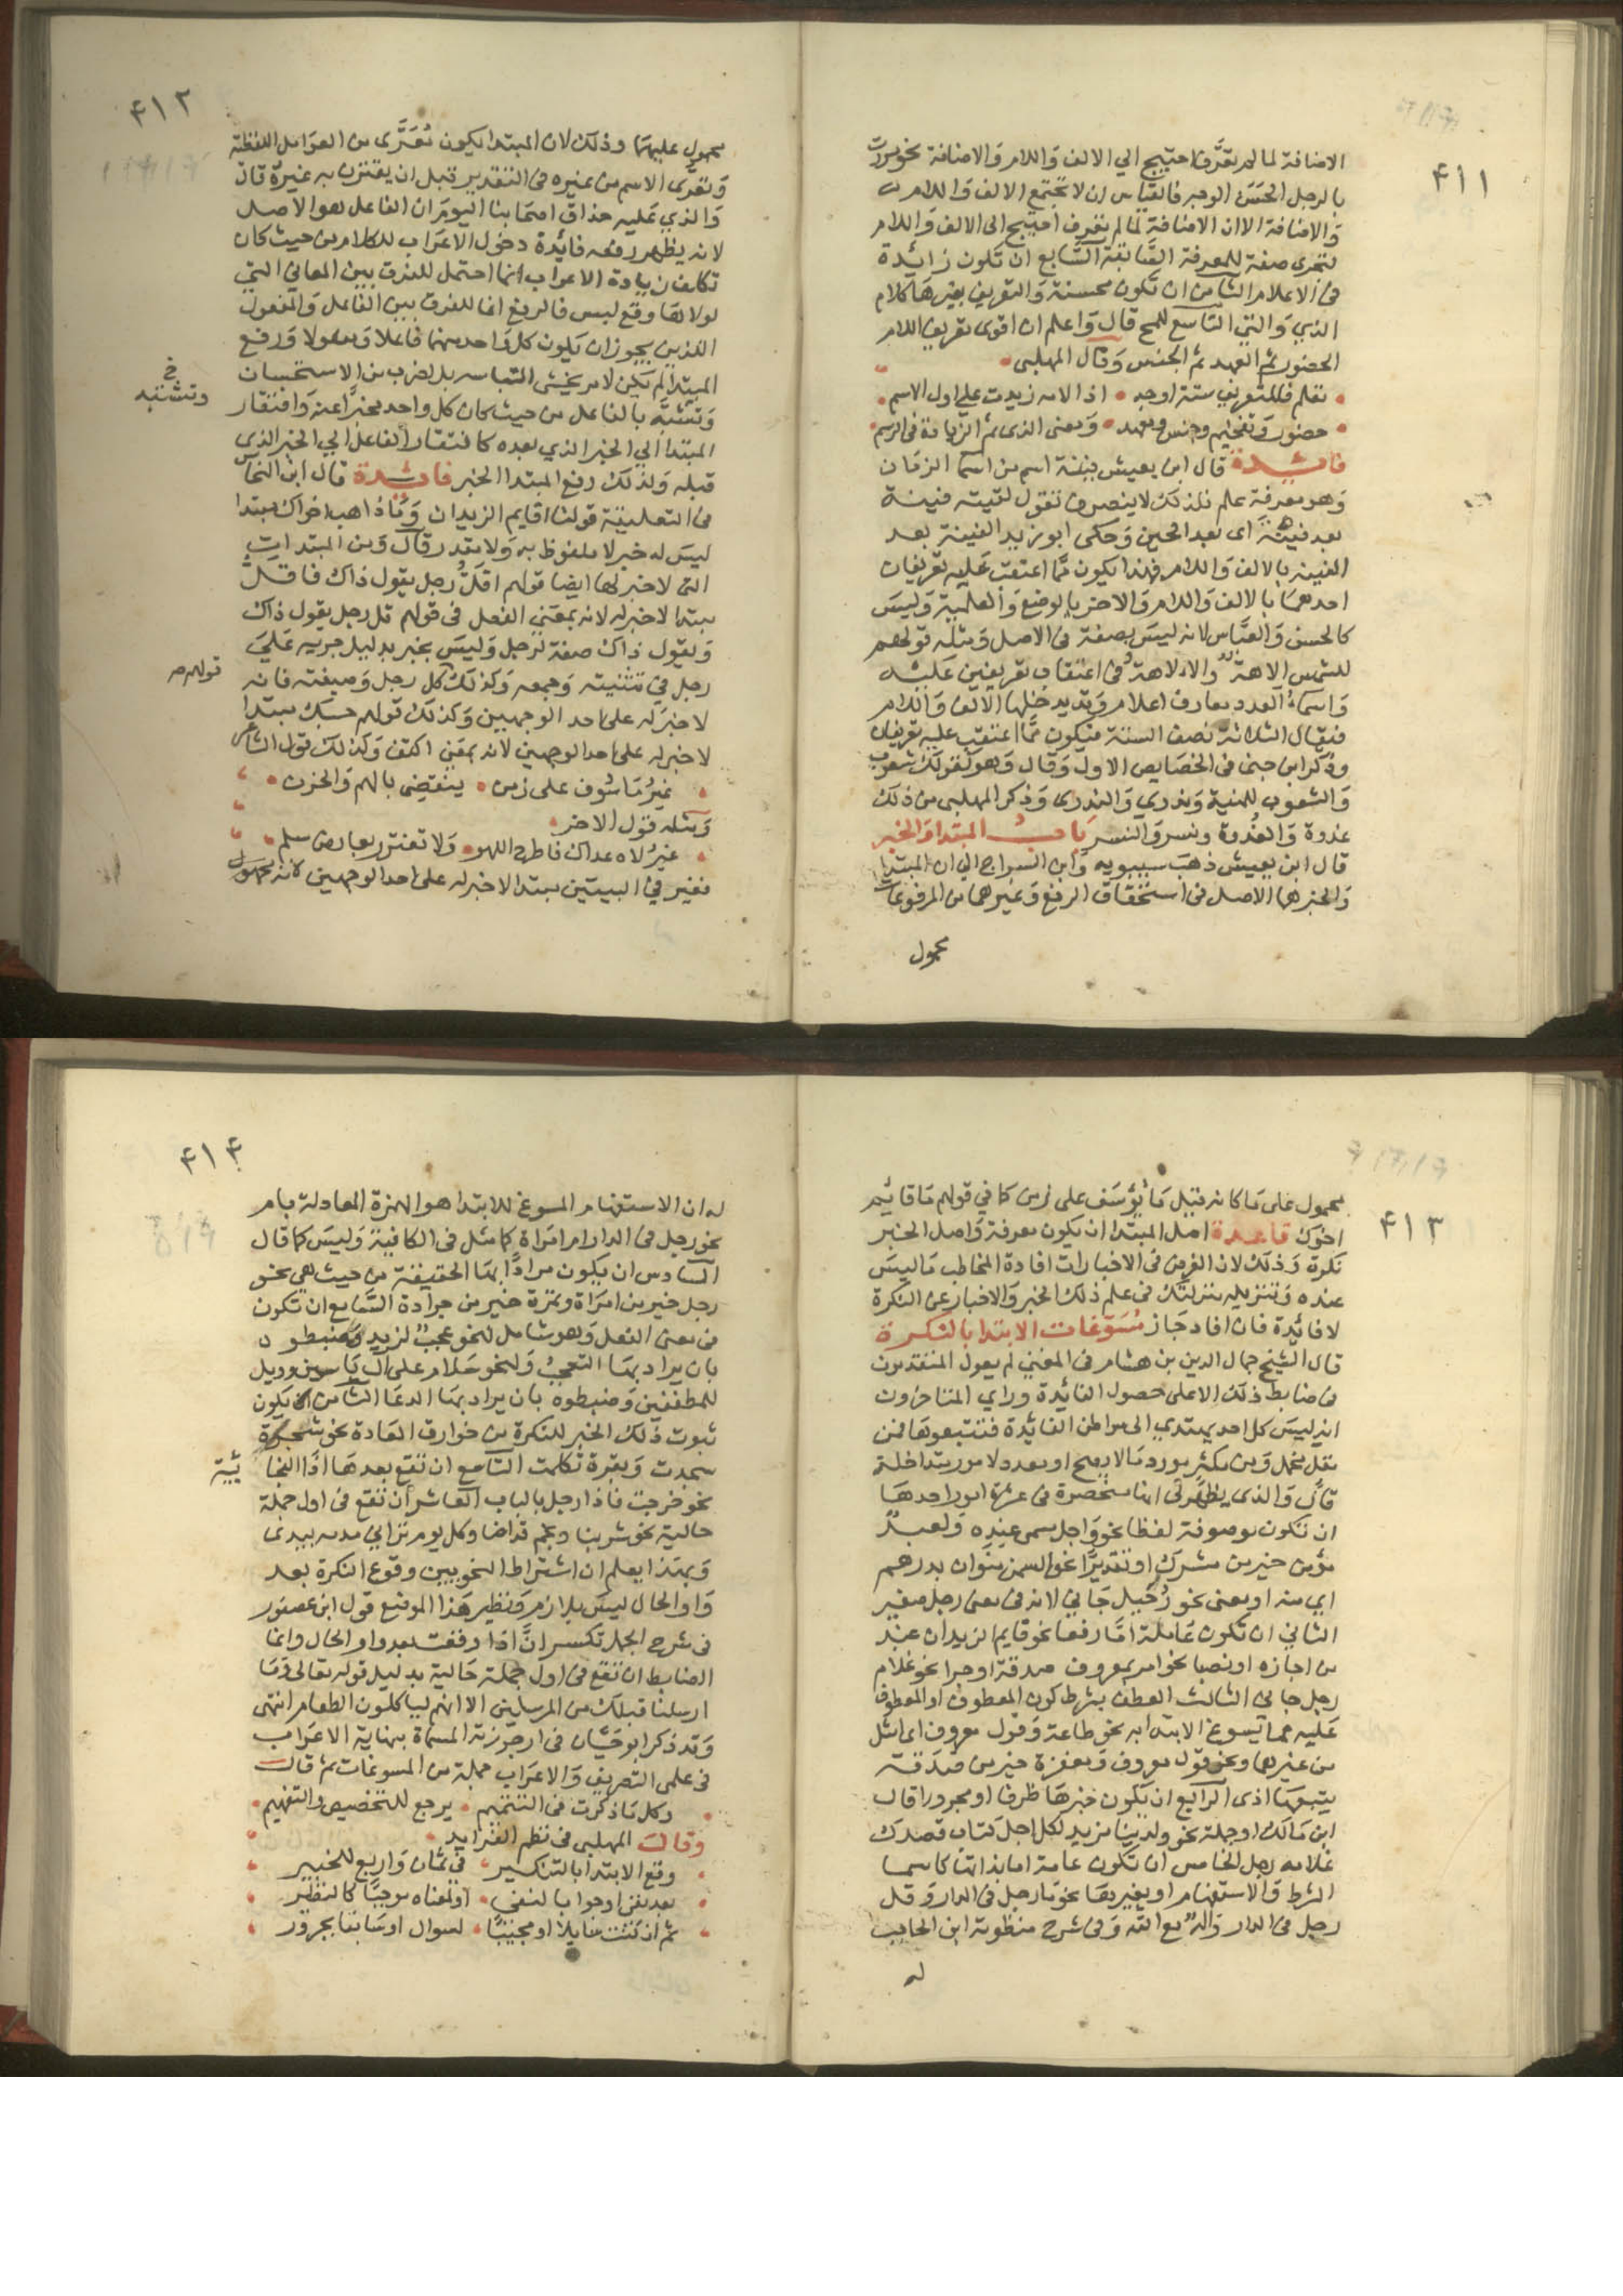 ٤١١
الاضافة لما لم تعرّف احتيج الي الالف واللام والاضافة نحو مررت
بالرجل الحسن الوجه فالقياس ان لا تجتمع الالف واللام
والاضافة الا ان الاضافة لما لم تعرف احتيج الى الالف واللام
لتجرى صفة للمعرفة السابقة السابع ان تكون زائدة
فى الاعلام الثامن ان تكون محسنة والتعريف بغيرها كلام
الذي والتي التاسع للمح قال واعلم ان اقوى تعريف اللام
الحضور ثم العهد ثم الجنس وقال المهلبى
تعلم فللتعريف ستة اوجه اذا لامه زيدت على اول الاسم
حضور وتفخيم وجنس ومعهد ومعنى الذى ثم الزيادة فى الرسم
فائدة قال ابن يعيش فينة اسم من اسما الزمان
وهو معرفة علم فلذلك لا ينصرف تقول لقيته فينة
بعد فينة اى بعد الحين وحكى ابو زيد الفينة بعد
الفينة بالالف واللام فهذا يكون مما اعتقب عليه تعريفان
احدهما بالالف واللام والاخر بالوضع والعلمية وليس
كالحسن والعباس لانه ليس بصفة فى الاصل ومثله قولهم
للشمس الاهة والالاهة فى اعتقاب تعريفين عليه
واسماء العدد معارف اعلام وقد يدخلها الالف واللام
فيقال الثلاثة نصف الستة فيكون مما اعتقب عليه تعريفان
وذكر ابن جنى فى الخصايص الاول وقال وهو كقولك شعوب
والشعوب للمنية وندرى والندرى وذكر المهلبى من ذلك
غدوة والغدوة ونسر والنسر باب المبتدا والخبر
قال ابن يعيش ذهب سيبويه وابن السراج الي ان المبتدا
والخبر هما الاصل فى استحقاق الرفع وغيرهما من المرفوعات
محمول
٤١٢
محمول عليهما وذلك لان المبتدا يكون معرّى من العوامل اللفظية
وتعرى الاسم من غيره فى التقدير قبل ان يقترن به غيره قال
والذي عليه حذاق اصحابنا اليوم ان الفاعل هو الاصل
لانه يظهر برفعه فائدة دخول الاعراب للكلام من حيث كان
تكلف زيادة الاعراب انما احتمل للفرق بين المعاني التي
لولاها وقع لبس فالرفع انما للفرق بين الفاعل والمفعول
اللذين يجوز ان يكون كل واحد منهما فاعلا ومفعولا ورفع
المبتدا لم يكن لامر يخشى التباسه بل لضرب من الاستحسان
وتشبه بالفاعل من حيث كان كل واحد مخبرا عنه وافتقار
خ
وتشبيه
المبتدا الي الخبر الذي بعده كافتقار الفاعل الي الخبر الذى
قبله ولذلك رفع المبتدا الخبر فائدة قال ابن النحاس
فى التعليقة قولنا اقايم الزيدان وما ذاهب اخواك مبتدا
ليس له خبر لا ملفوظ به ولا مقدر قال ومن المبتدات
التى لا خبر لها ايضا قولهم اقلّ رجل يقول ذاك فاقل
مبتدا لا خبر له لانه بمعنى الفعل فى قولهم قل رجل يقول ذاك
ويقول ذاك صفة لرجل وليس بخبر بدليل جريه على
رجل فى تثنيته وجمعه وكذلك كل رجل وضيعته فانه
قولهم
لا خبر له على احد الوجهين وكذلك قولهم حسبك مبتدا
لا خبر له على احد الوجهين لانه بمعنى اكتف وكذلك قول الشاعر
غير ماسوف على زمن ينقضى بالهم والحزن
ومثله قول الاخر
غير لاه عداك فاطرح اللهو ولا تغترر بعارض سلم
فغير في البيتين مبتدا لا خبر له على احد الوجهين لانه محمول
٤١٣
محمول على ما كانه قيل ما يؤسف على زمن كما في قولهم ما قائم
اخوك قاعدة اصل المبتدا ان يكون معرفة واصل الخبر
نكرة وذلك لان الغرض فى الاخبارات افادة المخاطب ما ليس
عنده وتنزيله منزلتك فى علم ذلك الخبر والاخبار عن النكرة
لا فائدة فان افاد جاز مسوغات الابتدا بالنكرة
قال الشيخ جمال الدين بن هشام فى المغني لم يعول المتقدمون
فى ضابط ذلك الا على حصول الفائدة وراي المتاخرون
انه ليس كل احد يهتدي الى مواطن الفائدة فتتبعوها فمن
مقل مخل ومن مكثر مورد ما لا يصح او معدد لامور متداخلة
قال والذى يظهر لى انها منحصرة فى عشرة امور احدها
ان تكون موصوفة لفظا نحو واجل مسمى عنده ولعبد
مؤمن خير من مشرك او تقديرا نحو السمن منوان بدرهم
اي منه او معنى نحو رجيل جاني لانه فى معنى رجل صغير
الثاني ان تكون عاملة اما رفعا نحو قايم الزيدان عند
من اجازه او نصبا نحو امر بمعروف صدقة او جرا نحو غلام
رجل جاني الثالث العطف بشرط كون المعطوف او المعطوف
عليه مما يسوغ الابتدا به نحو طاعة وقول معروف اى امثل
من غيرهما ونحو قول معروف ومغفرة خير من صدقة
يتبعها اذى الرابع ان يكون خبرها ظرفا او مجرورا قال
ابن مالك او جملة نحو ولدينا مزيد لكل اجل كتاب قصدك
غلامه رجل الخامس ان تكون عامة اما بذاتها كاسما
الشرط والاستفهام او بغيرها نحو ما رجل فى الدار وهل
رجل فى الدار واله مع الله وفى شرح منظومة ابن الحاجب
له
٤١٤
له ان الاستفهام المسوغ للابتدا هو الهمزة المعادلة بام
نحو رجل فى الدار ام امراة كما مثل فى الكافية وليس كما قال
السادس ان يكون مرادا بها الحقيقة من حيث هي نحو
رجل خير من امراة وتمرة خير من جرادة السابع ان تكون
فى معنى الفعل وهو شامل لنحو عجب لزيد وضبطوه
بان يراد بها التعجب ولنحو سلام على آل ياسين وويل
للمطففين وضبطوه بان يراد بها الدعا الثامن ان يكون
ثبوت ذلك الخبر للنكرة من خوارق العادة نحو شجرة
سجدت وبقرة تكلمت التاسع ان تقع بعدها اذا الفجا
ئية
نحو خرجت فاذا رجل بالباب العاشر ان تقع فى اول جملة
حالية نحو شرينا ونجم قد اضا وكل يوم تراني مدية بيدى
وبهذا يعلم ان اشتراط النحويين وقوع النكرة بعد
واو الحال ليس بلازم ونظير هذا الموضع قول ابن عصفور
فى شرح الجمل تكسر انّ اذا وقعت بعد واو الحال وانما
الضابط ان تقع فى اول جملة حالية بدليل قوله تعالى وما
ارسلنا قبلك من المرسلين الا انهم لياكلون الطعام انتهى
وقد ذكر ابو حيان فى ارجوزته المسماة بنهاية الاعراب
فى علمى التصريف والاعراب جملة من المسوغات ثم قال
وكل ما ذكرت فى التتميم يرجع للتخصيص والتعميم
وقال المهلبى فى نظم الفرايد
وقع الابتدا بالتنكير فى ثمان واربع للخبير
بعد نفى او جوابا لنفى او لمعناه موجبا كالنظير
ثم ان كنت سايلا او مجيبا لسوال او سابقا بمجرور